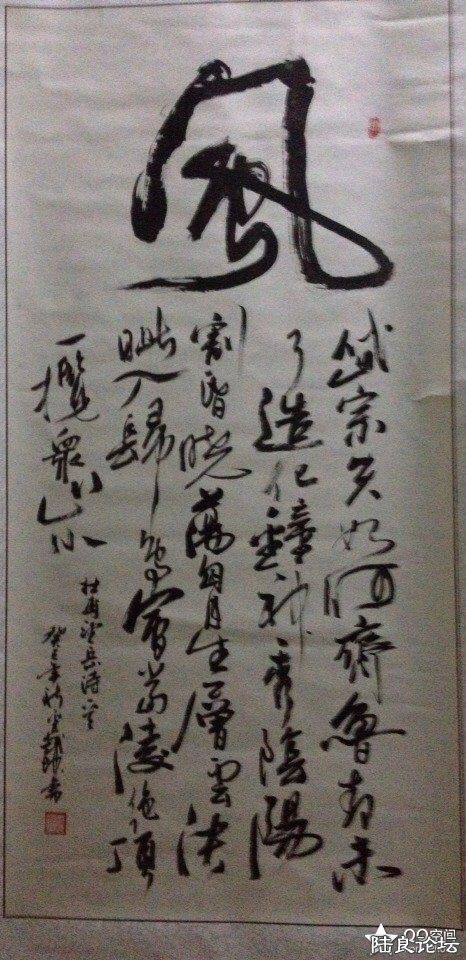 風
岱宗夫如何齊魯青未
了造化鐘神秀陰陽
割昏曉蕩胸生層雲決
眦入歸鳥會當凌絕頂
一攬眾山小
杜甫望岳詩一首
癸巳年秋 書
QQ空间
陆良论坛